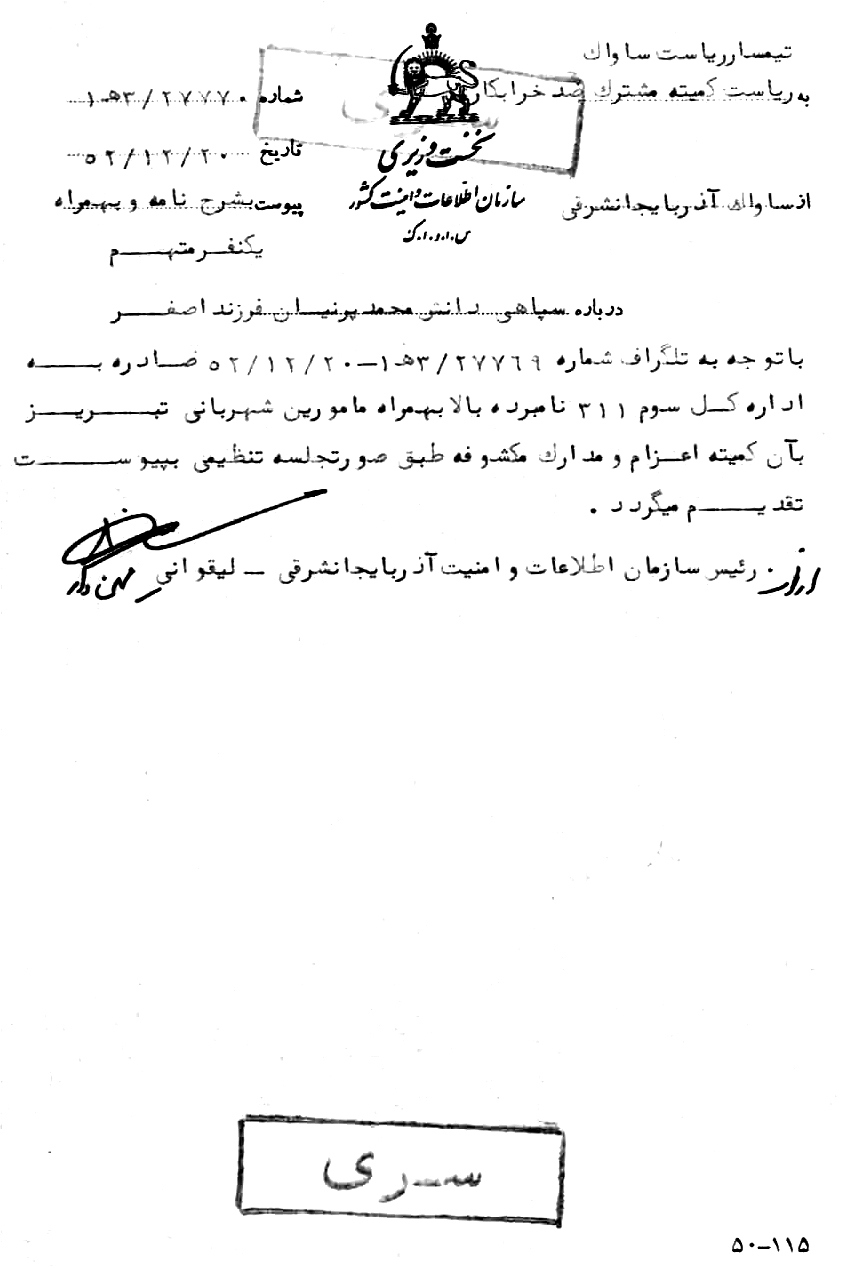 تیمسار ریاست ساواک
به ریاست کمیته مشترک ضد خرابکار
از ساواک آذربایجانشرقی
سـری
نخست وزیری
سازمان اطلاعات و امنیت کشور
س.ا.و.ا.ک
شماره ۲۷۷۷۰/۳هـ۱
تاریخ ۵۲/۱۲/۲۰
پیوست بشرح نامه و بهمراه
یکنفر متهم
درباره سپاهی دانش محمد پرنیان فرزند اصغر
باتوجه به تلگراف شماره ۲۷۷۶۹/۳هـ۱-۵۲/۱۲/۲۰ صادره به
اداره کل سوم ۳۱۱ نامبرده بالا بهمراه مامورین شهربانی تبریز
بآن کمیته اعزام و مدارک مکشوفه طبق صورتجلسه تنظیمی بپیوست
تقدیم میگردد .
رئیس سازمان اطلاعات و امنیت آذربایجانشرقی – لیقوانی
سـری
۵۰-۱۱۵